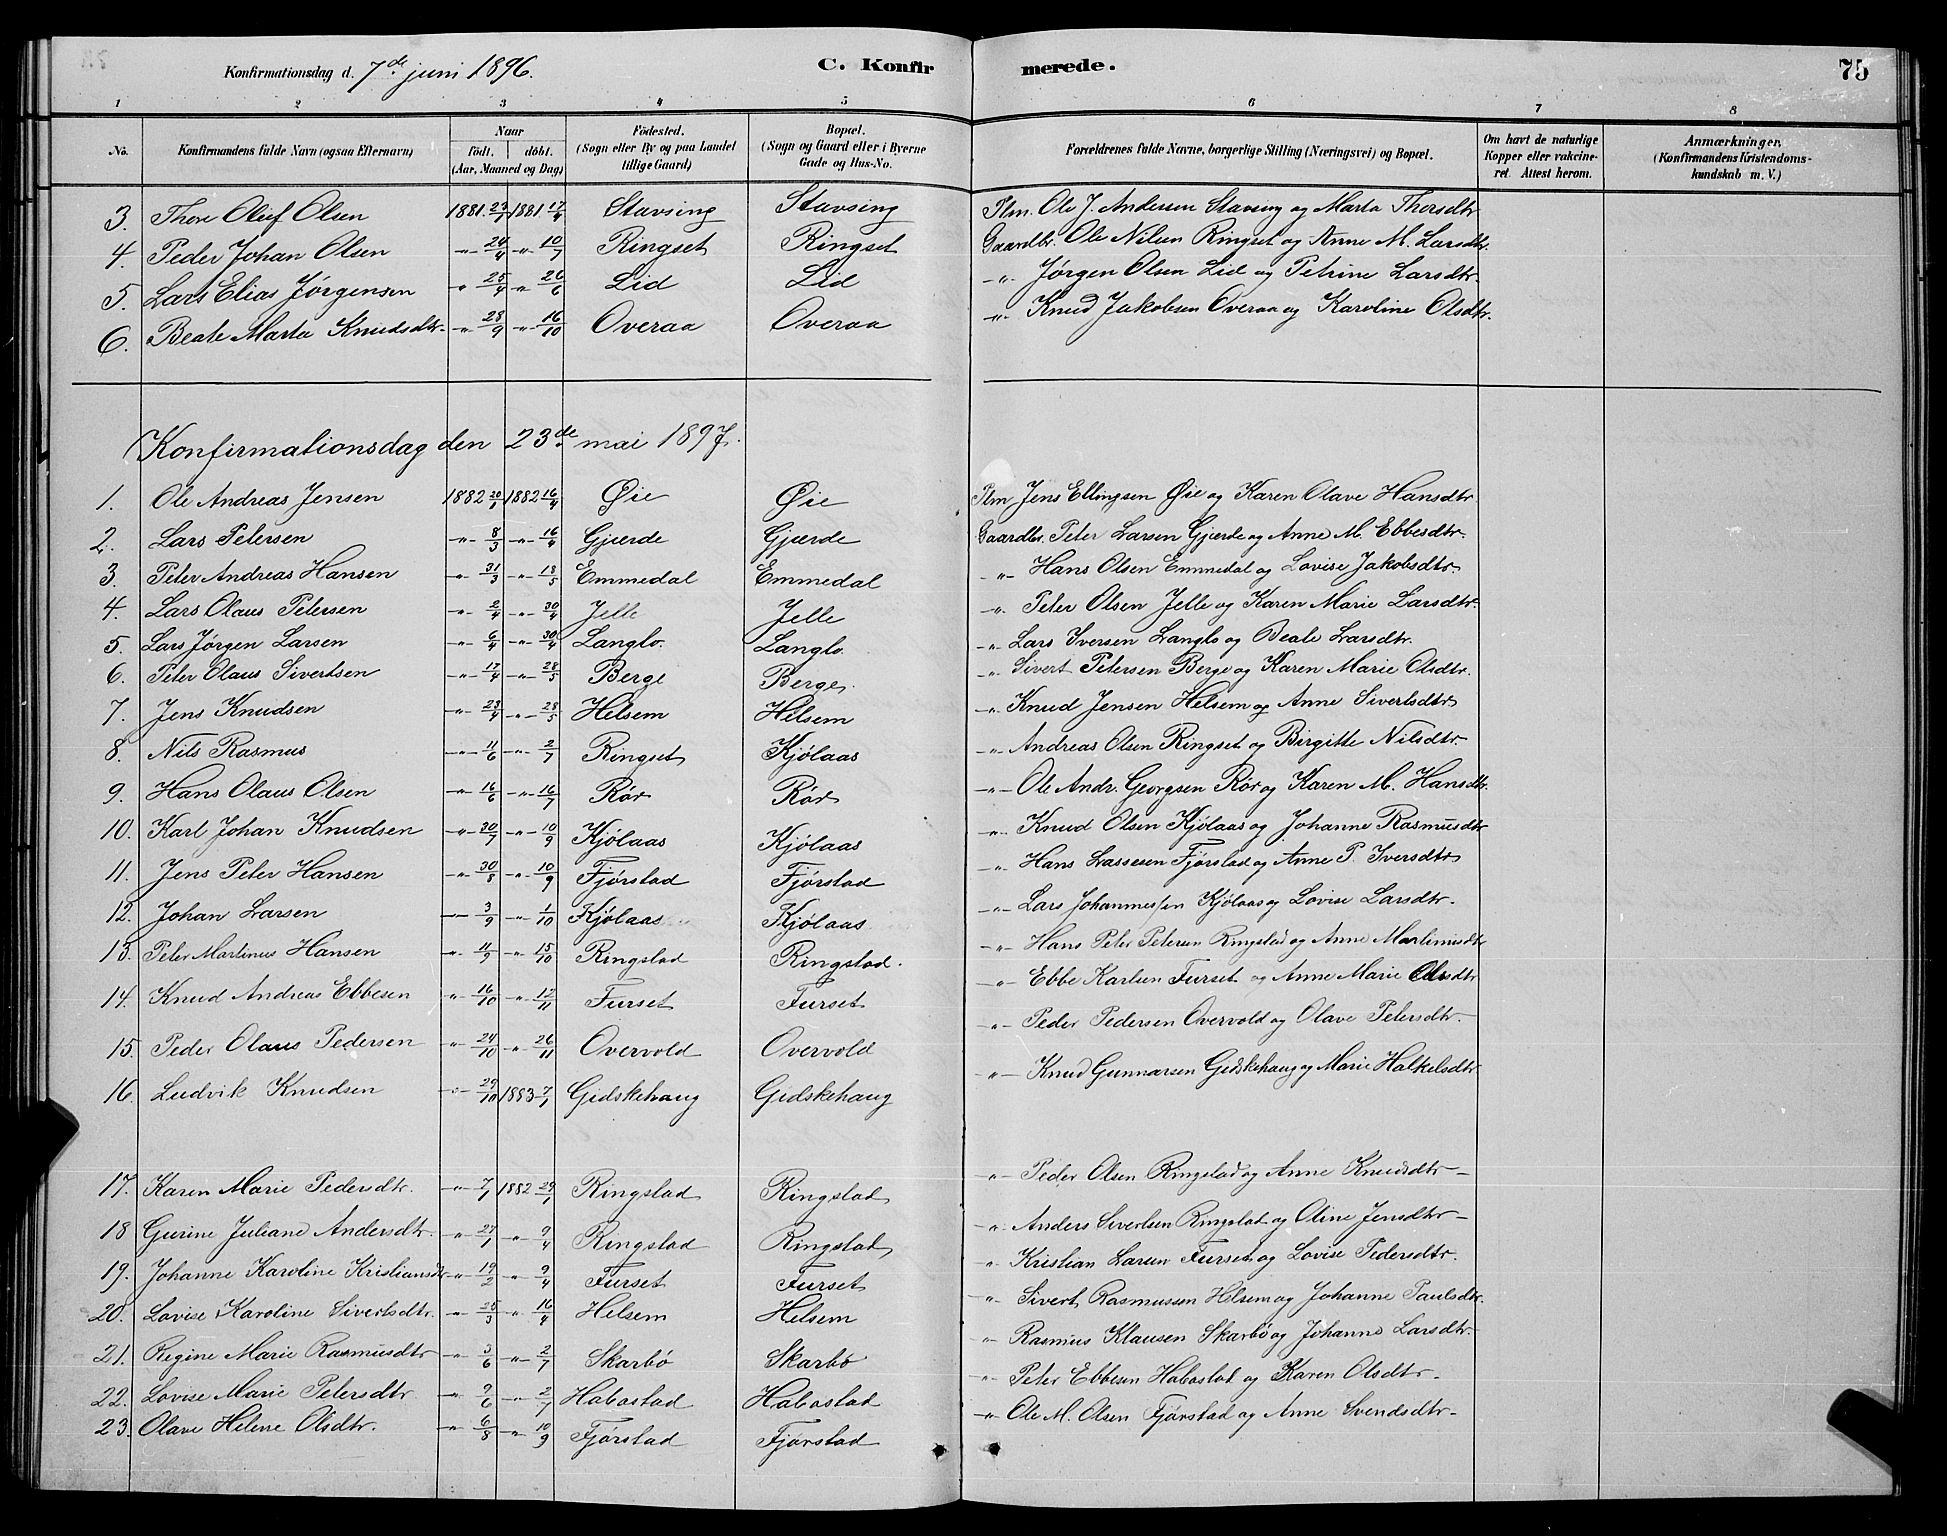 Konfirmationsdag d. 7de juni 1896. C. Konfirmerede. 75
1 2 3 4 5 6 7 8
No. Konfirmandens fulde Navn (ogsaa Efternavn) Naar födt. döbt. (Aar, Maaned og Dag) Födested. (Sogn eller By og paa Landet tillige Gaard) Bopæl. (Sogn og Gaard eller i Byerne Gade og Hus-No. Forældrenes fulde Navne, borgerlige Stilling (Næringsvei) og Bopæl. Om havt de naturlige Kopper eller vakcineret. Attest herom. Anmærkninger. (Konfirmandens Kristendomskundskab m. V.)
3. Thore Oluf Olsen 1881 23/7 1881 17/9 Stavsing Stavsing Plm. Ole J. Andersen Stavsing og Marta Thorsdtr
4. Peder Johan Olsen -"- 24/4 -"- 10/7 Ringset Ringset Gaardbr. Ole Nilsen Ringset og Anne M. Larsdtr.
5. Lars Elias Jørgensen " 25/4 " 26/6 Lid Lid -"- Jørgen Olsen Lid og Petrine Larsdtr.
6. Beate Marta Knudsdtr. -"- 28/9 -"- 16/10 Overaa Overaa -"- Knud Jakobsen Overaa og Karoline Olsdtr.
Konfirmationsdag den 23de mai 1897.
1. Ole Andreas Jensen 1882 20/1 1882 16/4 Øie Øie Plm Jens Ellingsen Øie og Karen Olave Hansdtr
2. Lars Petersen -"- 8/3 -"- 16/4 Gjærde Gjærde Gaardbr. Peter Larsen Gjerde og Anne M. Ebbesdtr.
3. Peter Andreas Hansen -"- 31/3 -"- 18/5 Emmedal Emmedal -"- Hans Olsen Emmedal og Lovise Jakobsdtr.
4. Lars Olaus Petersen -"- 2/4 -"- 30/4 Jelle Jelle -"- Peter Olsen Jelle og Karen Marie Larsdtr.
5. Lars Jørgen Larsen -"- 6/4 -"- 30/4 Langlo. Langlo. -"- Lars Iversen Langlo og Beate Larsdtr.
6. Peter Olaus Sivertsen -"- 17/4 -"- 28/5 Berge Berge. -"- Sivert Petersen Berge og Karen Marie Olsdtr.
7. Jens Knudsen -"- 28/4 -"- 28/5 Helsem Helsem -"- Knud Jensen Helsem og Anne Sivertsdtr
8. Nils Rasmus -"- 11/6 -"- 2/7 Ringset Kjölaas -"- Andreas Olsen Ringset og Birgitte Nilsdtr.
9. Hans Olaus Olsen -"- 16/6 -"- 16/7 Rör Rör -"- Ole Andr. Georgsen Rör og Karen M. Hansdtr.
10. Karl Johan Knudsen -"- 30/7 -"- 10/9 Kjölaas Kjölaas -"- Knud Olsen Kjölaas og Johanne Rasmusdtr
11. Jens Peter Hansen -"- 30/8 -"- 10/9 Fjörstad Fjörstad -"- Hans Lassesen Fjörstad og Anne P. Iversdtr
12. Johan Larsen -"- 3/9 -"- 1/10 Kjölaas Kjölaas -"- Lars Johannessen Kjölaas og Lovise Larsdtr.
13. Peter Martinus Hansen -"- 11/9 -"- 15/10 Ringstad Ringstad. -"- Hans Peter Petersen Ringstad og Anne Martinusdtr
14. Knud Andreas Ebbesen " 16/10 -"- 12/11 Furset Furset -"- Ebbe Karlsen Furset og Anne Marie Olsdtr
15. Peder Olaus Pedersen " 24/10 " 26/11 Overvold Overvold -"- Peder Pedersen Overvold og Olave Petersdtr.
16. Ludvik Knudsen -"- 29/10 1883 7/1 Gidskehaug Gidskehaug -"- Knud Gunnarsen Gidskehaug og Marie Halkelsdtr.
17. Karen Marie Pedersdtr. -"- 7/1 1882 29/1 Ringstad Ringstad -"- Peder Olsen Ringstad og Anne Knudsdtr
18 Gurine Juliane Andersdtr. -"- 27/1 -"- 9/4 Ringstad Ringstad -"- Anders Sivertsen Ringstad og Oline Jensdtr
19. Johanne Karoline Kristiansdtr -"- 19/2 -"- 9/4 Furset Furset -"- Kristian Larsen Furset og Lovise Pedersdtr.
20. Lovise Karoline Sivertsdtr. -"- 25/3 " 16/4 Helsem Helsem -"- Sivert Rasmussen Helsem og Johanne Paulsdtr.
21. Regine Marie Rasmusdtr -"- 3/6 -"- 2/7 Skarbö Skarbö -"- Rasmus Klausen Skarbö og Johanne Larsdtr.
22. Lovise Marie Petersdtr. " 9/6 " 2/7 Habostad Habostad -"- Peter Ebbesen Habostad og Karen Olsdtr.
23. Olave Helene Olsdtr. -"- 6/8 -"- 10/9 Fjörstad Fjörstad -"- Ole M. Olsen Fjörstad og Anne Svendsdtr